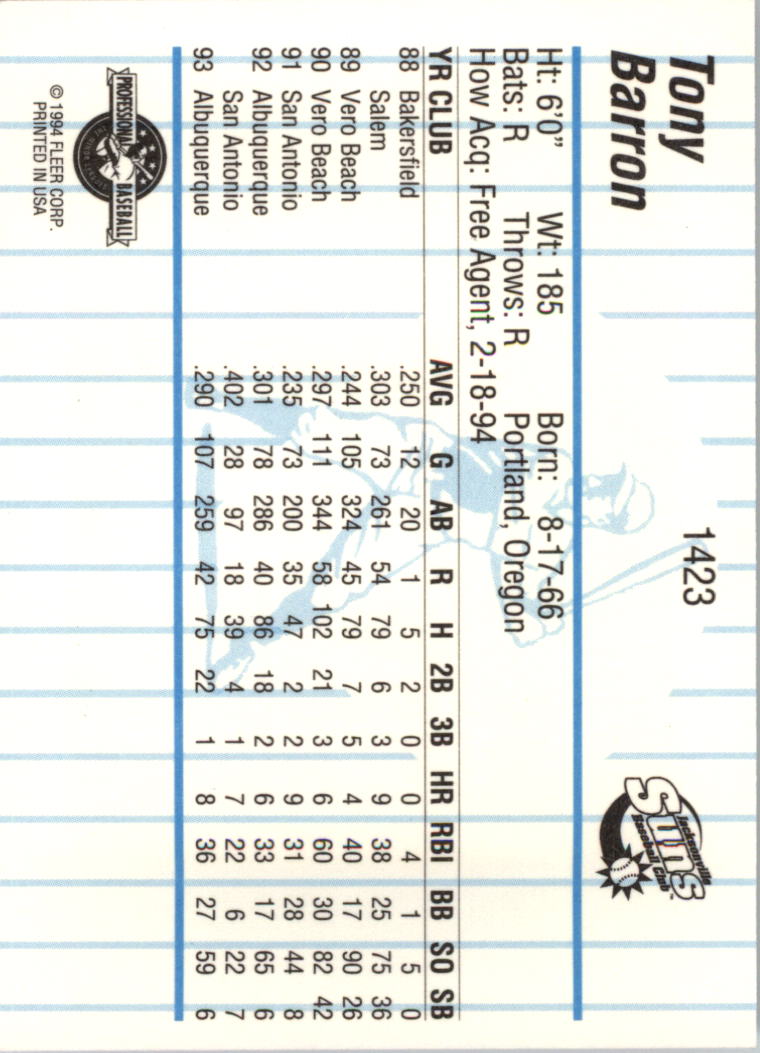 Tony
Barron
1423
Jacksonville
Suns
Baseball Club
Ht: 6'0" Wt: 185 Born: 8-17-66
Bats: R Throws: R Portland, Oregon
How Acq: Free Agent, 2-18-94
YR CLUB AVG G AB R H 2B 3B HR RBI BB SO SB
88 Bakersfield .250 12 20 1 5 2 0 0 4 1 5 0
Salem .303 73 261 54 79 6 3 9 38 25 75 36
89 Vero Beach .244 105 324 45 79 7 5 4 40 17 90 26
90 Vero Beach .297 111 344 58 102 21 3 6 60 30 82 42
91 San Antonio .235 73 200 35 47 2 2 9 31 28 44 8
92 Albuquerque .301 78 286 40 86 18 2 6 33 17 65 6
San Antonio .402 28 97 18 39 4 1 7 22 6 22 7
93 Albuquerque .290 107 259 42 75 22 1 8 36 27 59 6
PROFESSIONAL BASEBALL
© 1994 FLEER CORP.
PRINTED IN USA